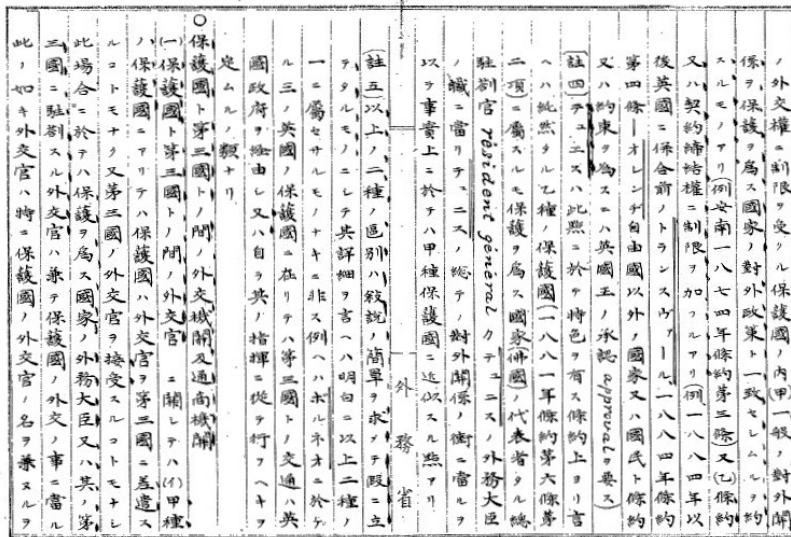 ノ外交權ニ制限ヲ受クル保護國ノ内(甲)一般ノ對外關
係ヲ保護ヲ爲ス國家ノ對外政策ト一致セシムルヲ約
スルモノアリ(例安南一八七四年條約第三條)又(乙)條約
又ハ契約締結權ニ制限ヲ加フルアリ(例一八八四年以
後英國ニ併合前ノトランスヴァール、一八八四年條約
第四條ーオレンヂ自由國以外 國家又ハ國民ト條約
又ハ約束ヲ爲スニハ英國王ノ承認approvalヲ要ス)
(註四)テュニスハ此點ニ於テ特色ヲ有ス條約上ヨリ言
ヘハ純然タル乙種ノ保護國(一八八一年條約第六條第
二項)ニ屬スルモ保護ヲ爲ス國家(佛國)ノ代表者タル總
駐劄官 résident général ハテュニスノ外務大臣
ノ職ニ當リテュニスノ總テノ對外關係ノ衝ニ當ルヲ
以テ事實上ニ於テハ甲種保護國ニ近似スル點アリ
外務省
(註五)以上ノ二種ノ區別ハ敍説ノ簡單ヲ求メテ假ニ立
テタルモノニシテ其詳細ヲ言ヘハ明白ニ以上二種ノ
一ニ屬セサルモノナキニ非ス例ヘハボルネオニ於ケ
ル三ノ英國ノ保護國ニ在リテハ第三國トノ交通ハ英
國政府ヲ經由シ又ハ自ラ其ノ指揮ニ從テ行フヘキヲ
定ムルノ類ナリ
○保護國ト第三國トノ間ノ外交機關及通商機關
(一)保護國ト第三國トノ間ノ外交官 ニ關シテハ(イ)甲種
ノ保護國ニアリテハ保護國ハ外交官ヲ第三國ニ差遣ス
ルコトモナク又第三國ノ外交官ヲ接受スルコトモナシ
此場合ニ於テハ保護ヲ爲ス國家ノ外務大臣又ハ其ノ第
三國ニ駐劄スル外交官ハ兼テ保護國ノ外交ノ事ニ當ル
此ノ如キ外交官ハ特ニ保護國ノ外交官ノ名ヲ兼ヌルヲ